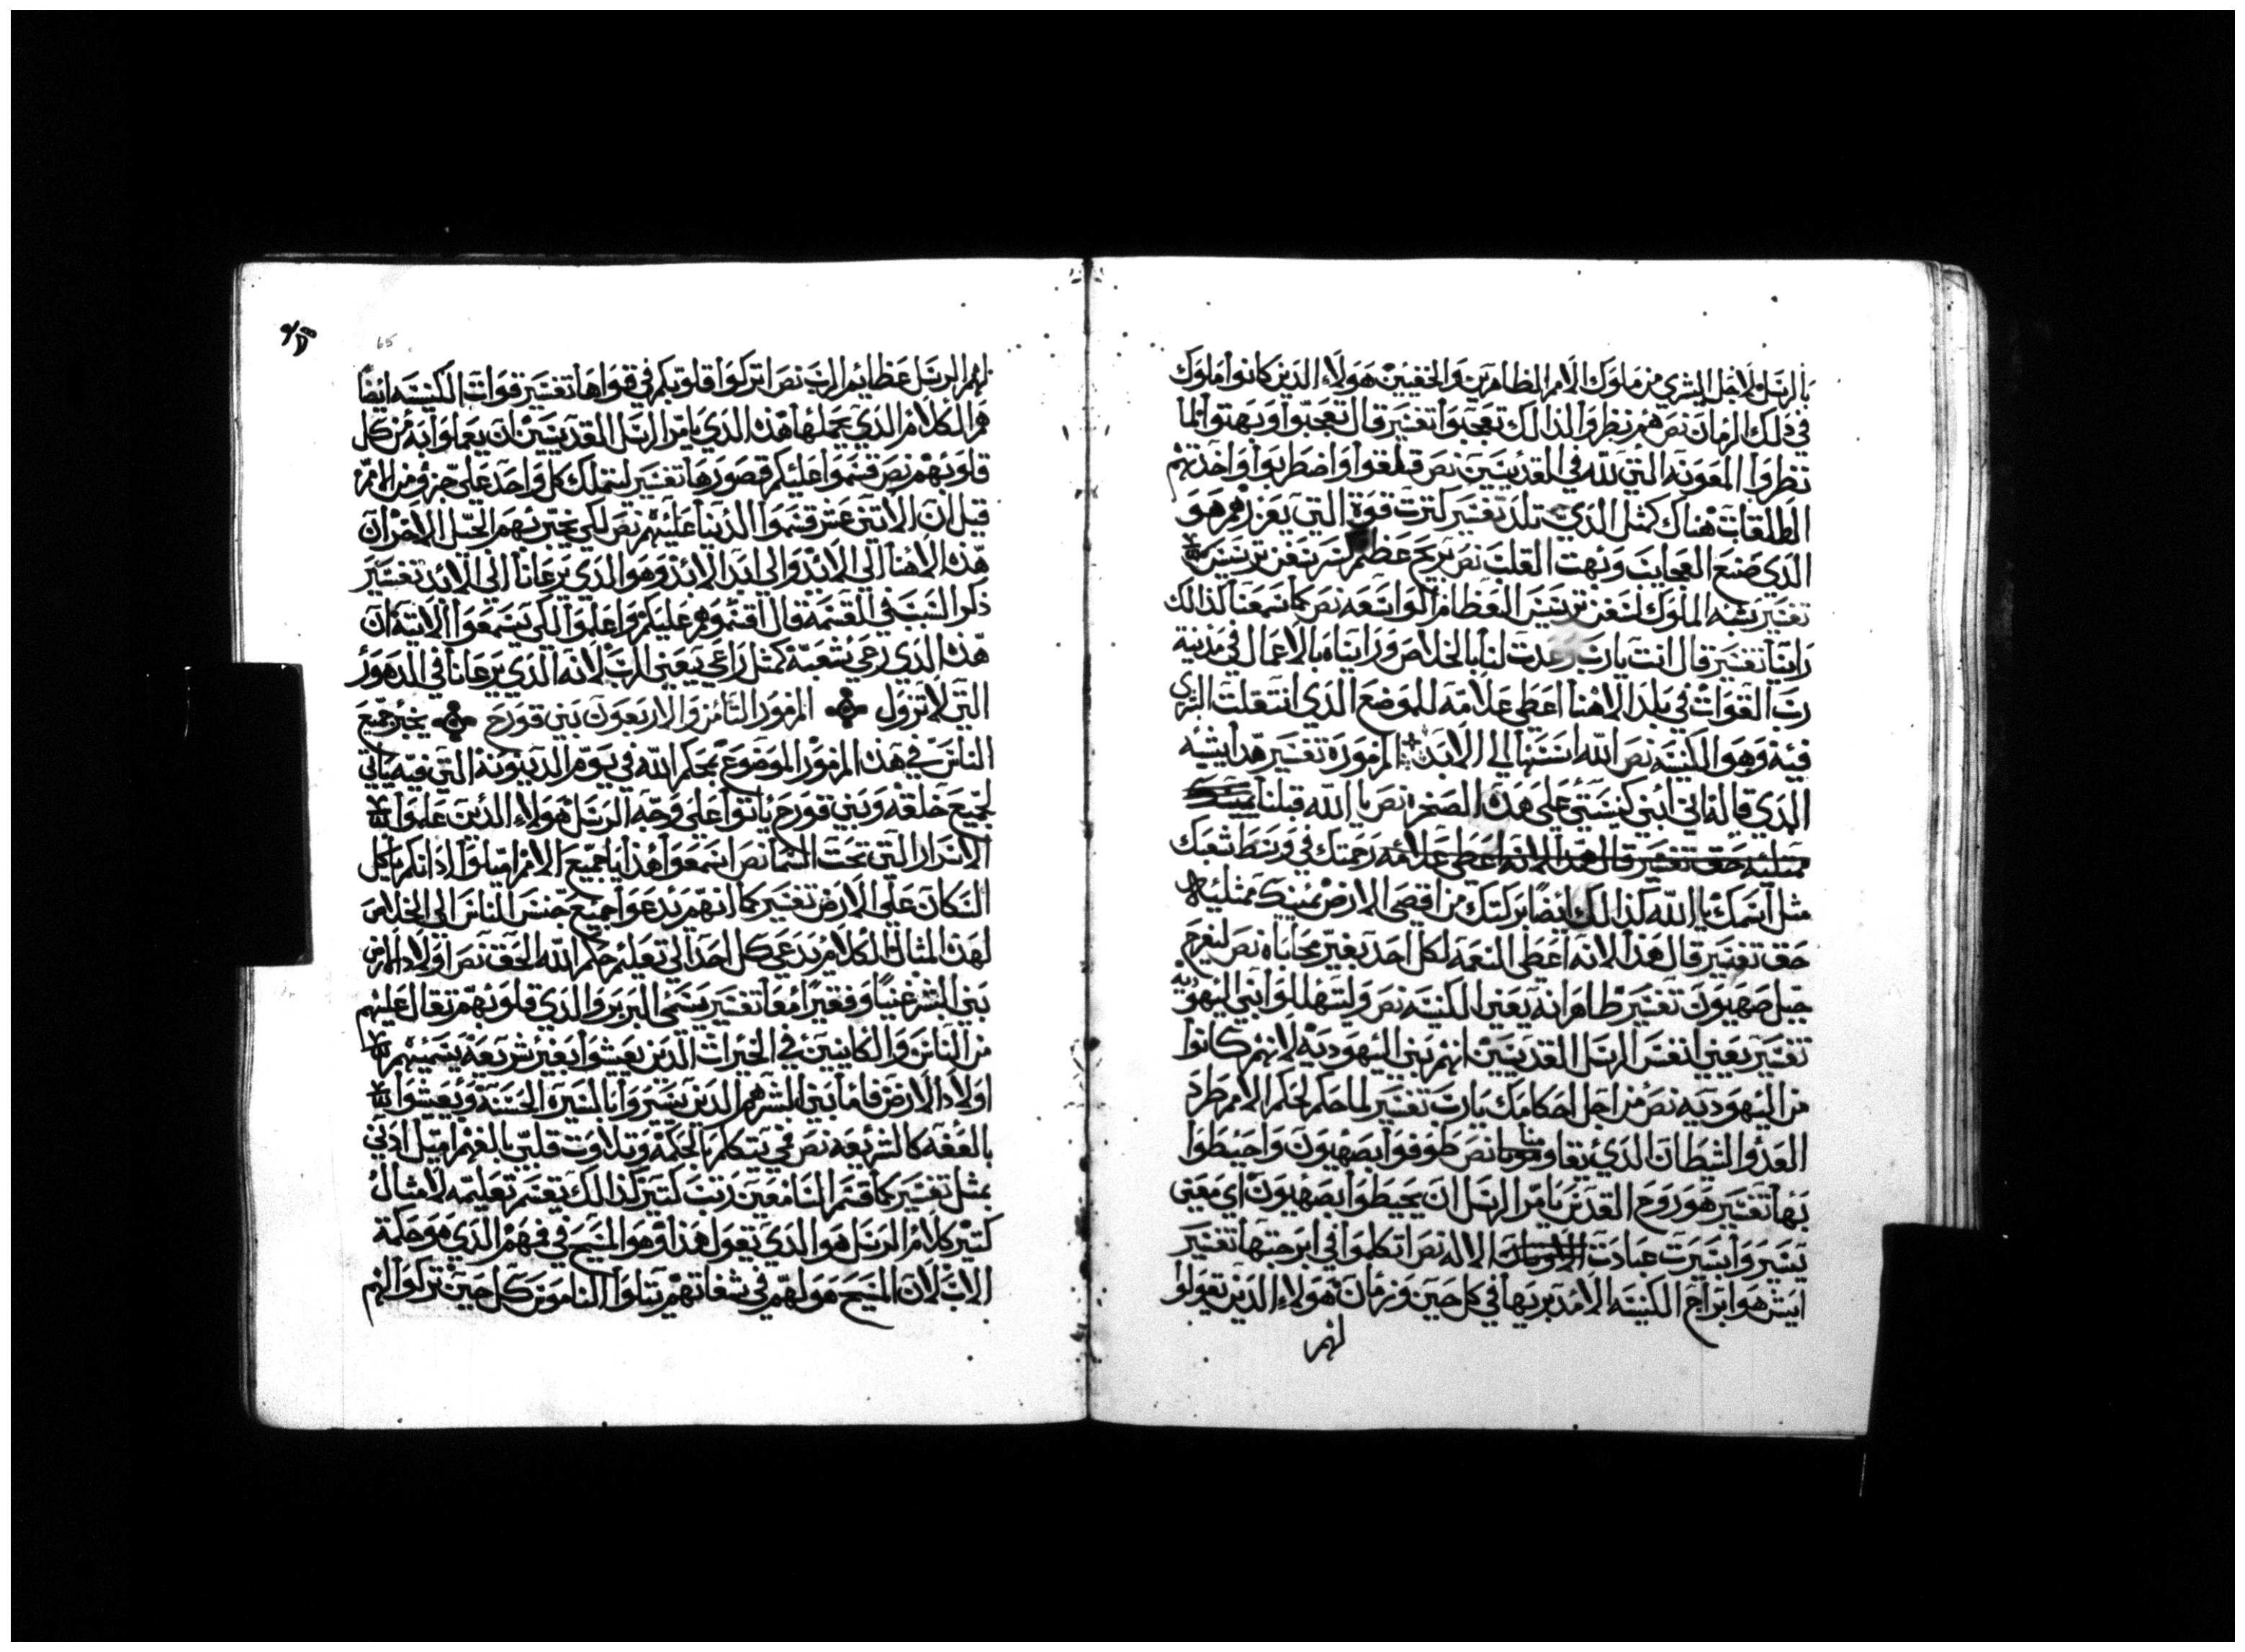 بالرسل ولاجل البشري من ملوك الامم الظاهرين والخفيين هولاء الذين كانوا ملوك
في ذلك الزمان نص هم نظروا لذالك تعجبوا تفسير قال تعجبوا وبهتوا لما
نظروا المعونه التي لله في القديسين نص قلقوا واضطربوا واخذتهم
الطلقات هناك كمثل الذي تلد تفسير كترت قوة التي يعزرهم هو
الذي صنع العجايب وبهت القلب نص بريح عظيم تكسر سفن ترسيس
تفسير يشبه الملوك لسفن ترسيس العظام الواسعه نص كما سمعنا كذالك
راينا تفسير قال انت يارب وعدت لنا بالخلاص ورايناه بالاعمال في مدينة
رب القوات في بلد الاهنا اعطي علامه للموضع الذي انتقلت الذي
فيه وهو الكنيسه نص الله اسسها الي الابد المزمور تفسير هذا يشبه
الذي قاله اني ابني كنيستي علي هذه الصخره نص يا الله قبلنا
ممتليه حق تفسير قال هذا لانه اعطي علامه رحمتك في وسط شعبك
مثل اسمك يا الله كذالك ايضا بركتك من اقصي الارض يمينك ممتليه
حق تفسير قال هذا لانه اعطي النعمه لكل احد بغير محاباه نص ليفرح
جبل صهيون تفسير ظاهر انه يعني الكنيسه نص ولتهللوا بني اليهوديه
تفسير يعني انفس الرسل القديسين انهم بني اليهوديه لانهم كانوا
من اليهوديه نص من اجل احكامك يارب تفسير لما حكم لحكم الامم طرد
العدو الشيطان الذي يقاومنا نص طوفوا بصهيون واحيطوا
بها تفسير هو روح القدس يامر الرسل ان يحيطوا بصهيون اي معني
يسيروا بسيرت عبادت الاله نص اتكلموا في ابرجتها تفسير
ايش هوا براج الكنيسه الا مدبريها في كل حين وزمان هولاء الذين يقولوا
لهم
65
لهم الرسل عظايم الرب نص اتركوا قلوبكم في قواها تفسير قوات الكنيسه ايضا
هم الكلام الذي يحملها هذه الذي يامر الرسل القديسين ان يعملوا به من كل
قلوبهم نص قسموا عليكم قصورها تفسير ليتملك كل واحد علي جزو من الامم
قيل ان الاتني عشر قسموا الدنيا عليهم نص لكي نخبر بهم الجيل الاخر ان
هذا الاهنا الي الابد والي ابد الابد وهو الذي يرعانا الي الابد تفسير
ذكر السبب في القسمه قال اقسموهم عليكم واعلموا لكي يسمعوا الاتيه ان
هذا الذي رعي شعبه كمثل راعي يعني الرب لانه الذي يرعانا في الدهور
التي لا تزول المزمور التامن والاربعون بني قورح يخبر جميع
الناس في هذا المزمور الموضوع بحكم الله في يوم الدينونه التي فيه ياتي
لجميع خلقه وبني قورح ياتوا علي وجه الرسل هولاء الذين علموا
الاسرار التي تحت السما نص اسمعوا هذا يا جميع الامم اميلوا اذانكم يا كل
السكان علي الارض تفسير كما انهم يدعوا جميع جنس الناس الي الخلاص
لهذا المثال الكلام يدعي كل احد الي تعليم حكم الله الحق نص اولاد الارض
بني البشر غنيا وفقيرا معا تفسير يسمي البربر والذي قلوبهم تقال عليهم
من الناس والكاينين في الخيرات الذين يعيشوا بغير شريعه يسميهم
اولاد الارض فاما بني البشر هم الذين يسيروا بالسيرة الحسنه ويعيشوا
بالفقه كالشريعه نص في يتكلم بالحكمة وتلاوت قلبي بالفهم اميل ادني
بمثل تفسير كما قسم السامعين رتب كتير كذالك يقسم تعليمه لامثال
كتير كلام الرسل هو الذي يقول هذا وهو المسيح في فهم الذي هو حكمة
الاب لان المسيح هو لهم في شفاتهم يتلوا الناموس كل حين تركوا لهم